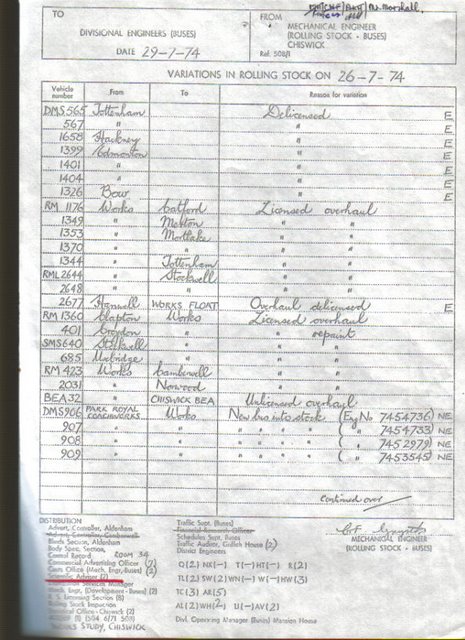 TO
FROM
Mr. Marshall.
DIVISIONAL ENGINEERS (BUSES)
MECHANICAL ENGINEER
(ROLLING STOCK - BUSES)
CHISWICK
DATE 29-7-74
Ref: 508/1
VARIATIONS IN ROLLING STOCK ON 26-7-74
Vehicle number From To Reason for variation
DMS 565 Tottenham Delicensed E
567 " " E
1658 Hackney " E
1399 Edmonton " E
1401 " " E
1404 " " E
1326 Bow " E
RM 1176 Works Catford Licensed overhaul
1349 " Merton " "
1353 " Mortlake " "
1370 " " " "
1344 " Tottenham " "
RML 2644 " Stockwell " "
2648 " " " "
2677 Hanwell WORKS FLOAT Overhaul delicensed E
RM 1360 Clapton Works Licensed overhaul
401 Croydon " " repaint
SMS 640 Stockwell " " "
685 Uxbridge " " "
RM 423 Works Camberwell " "
2031 " Norwood " "
BEA 32 " CHISWICK BEA Unlicensed overhaul
DMS 906 PARK ROYAL COACHWORKS Works New bus into stock (Eng No 7454736) NE
907 " " " " " " ( " 7454733) NE
908 " " " " " " ( " 7452979) NE
909 " " " " " " ( " 7453545) NE
continued over
DISTRIBUTION
Advert. Controller, Aldenham
Blinds Section, Aldenham
Body Spec. Section,
Control Record ROOM 34
Commercial Advertising Officer (7)
Costs Office (Mech. Engr, Buses) (2)
Scientific Adviser (2)
Services Manager
Mech. Engr. (Development - Buses) (2)
Rolling Stock Inspection
Technical Office - Chiswick (2)
WORKS STUDY, CHISWICK
Traffic Supt. (Buses)
Financial Research Officer
Schedules Supt. Buses
Traffic Auditor, Griffith House (2)
District Engineers
Q(2) NX(-) T(-) HT(-) R(2)
TL(2) SW(2) WN(-) W(-) HW(3)
TC(3) AR(5)
AL(2) WH(2) U(-) AV(2)
Divl. Operating Manager (Buses) Mansion House
MECHANICAL ENGINEER
(ROLLING STOCK - BUSES)